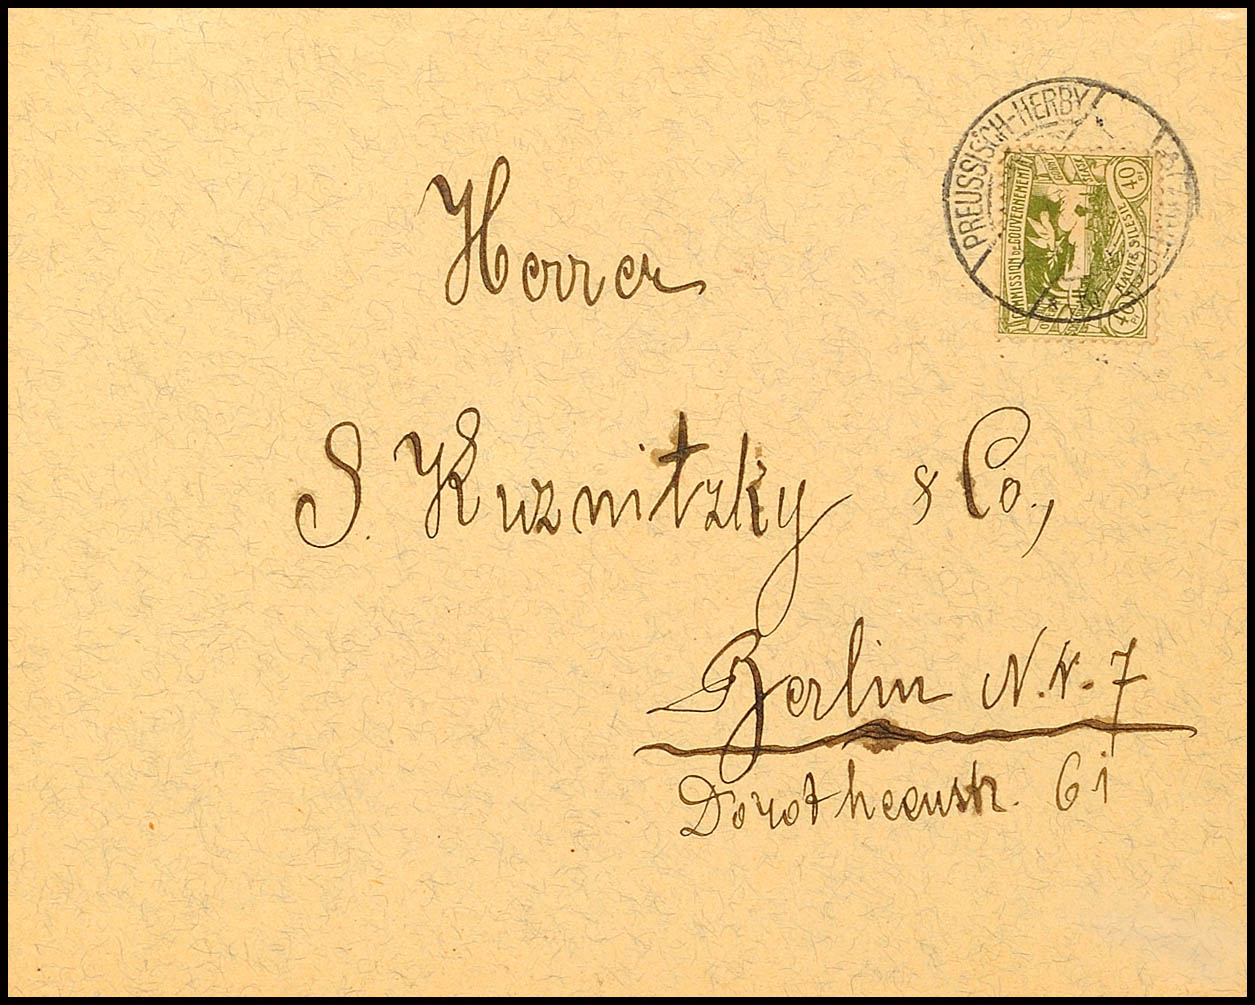 PREUSSISCH-HERBY
COMMISSION DE GOUVERNEMENT
HAUTE SILESIE
40
40
Herren
S. Kuznitzky & Co.,
Berlin N.W. 7
Dorotheenstr. 61